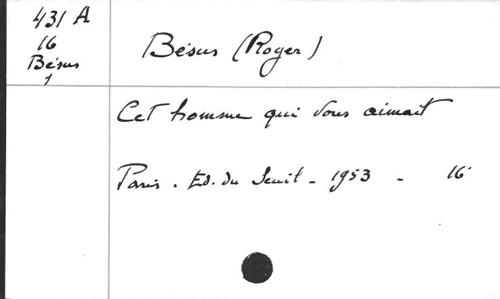 431 A
16
Bésus
1
Bésus (Roger)
Cet homme qui vous aimait
Paris. Ed. du Seuil - 1953 - 16